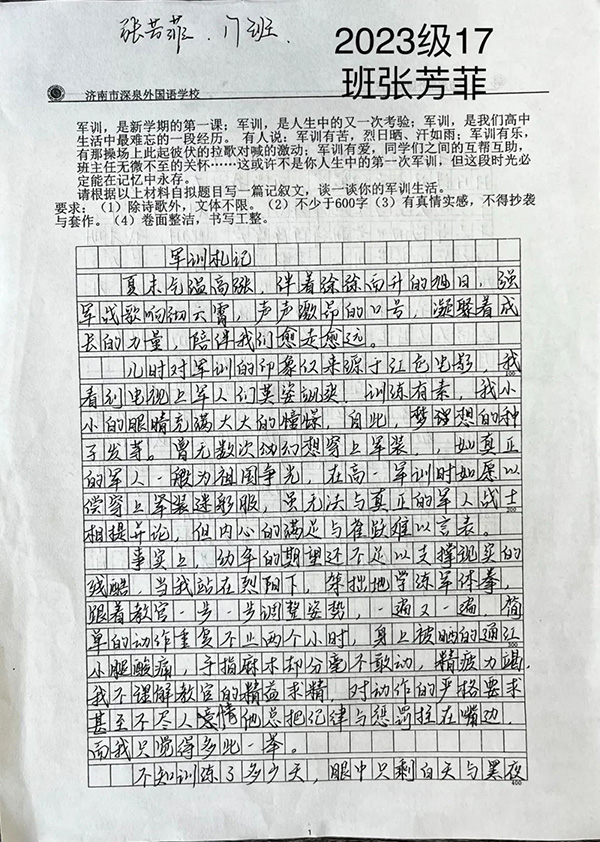 张芳菲.17班.
2023级17
班张芳菲
济南市深泉外国语学校
军训，是新学期的第一课；军训，是人生中的又一次考验；军训，是我们高中
生活中最难忘的一段经历。 有人说：军训有苦，烈日晒、汗如雨；军训有乐，
有那操场上此起彼伏的拉歌对喊的激动；军训有爱，同学们之间的互帮互助，
班主任无微不至的关怀……这或许不是你人生中的第一次军训，但这段时光必
定能在记忆中永存。
请根据以上材料自拟题目写一篇记叙文，谈一谈你的军训生活。
要求：（1）除诗歌外，文体不限。（2）不少于600字（3）有真情实感，不得抄袭
与套作。（4）卷面整洁，书写工整。
军训札记
夏末气温高涨，伴着徐徐而升的旭日，强
军战歌响彻云霄，声声激昂的口号，凝聚着成
长的力量，陪伴我们愈走愈远。
儿时对军训的印象仅来源于红色电影，我
100
看到电视上军人们英姿飒爽.训练有素，我小
小的眼睛充满大大的憧憬，自此，梦想的种
子发芽。曾无数次幼幻想穿上军装，，如真正
的军人一般为祖国争光，在高一军训时如愿以
偿穿上军装迷彩服，虽无法与真正的军人战士
200
相提并论，但内心的满足与雀跃难以言表。
事实上，幼年的期望还不足以支撑现实的
残酷.当我站在烈阳下，笨拙地学练军体拳，
跟着教官一步一步调整姿势，一遍又一遍.简
单的动作重复不止两个小时，身上被晒的通红
300
小腿酸痛，手指麻木却分毫不敢动，精疲力竭.
我不理解教官的精益求精，对动作的严格要求
甚至不尽人情他总把纪律与惩罚挂在嘴边.
而我只觉得多此一举。
不知训练了多少天，眼中只剩白天与黑夜
400
1